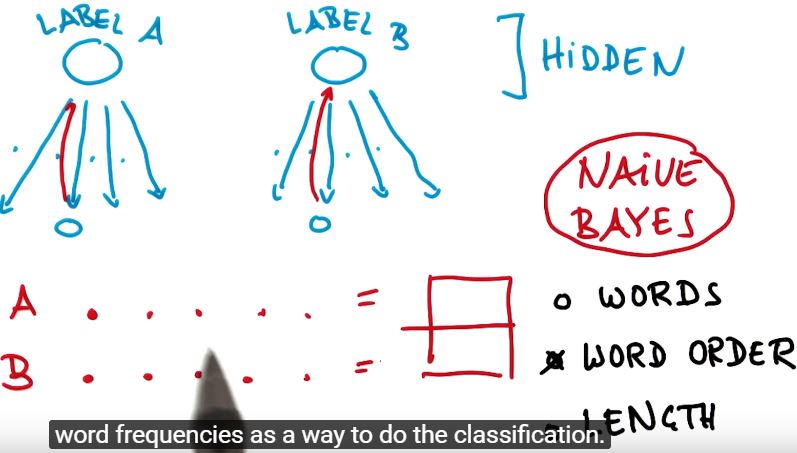 LABEL A
LABEL B
HIDDEN
NAIVE
BAYES
A . . . . . =
B . . . . . =
WORDS
WORD ORDER
LENGTH
word frequencies as a way to do the classification.